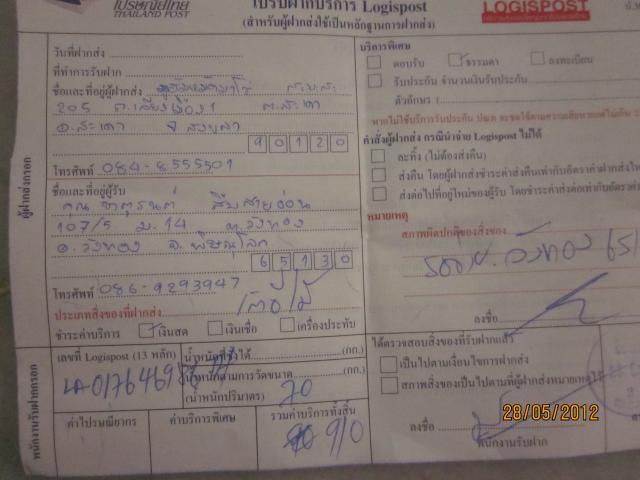 ไปรษณีย์ไทย
THAILAND POST
ใบรับฝากบริการ Logispost
(สำหรับผู้ฝากส่งใช้เป็นหลักฐานการฝากส่ง)
LOGISPOST
วันที่ฝากส่ง
ที่ทำการรับฝาก
ชื่อและที่อยู่ผู้ฝากส่ง
205 ต.สะเดา
อ.สะเดา จ.สงขลา
90120
โทรศัพท์ 084-8555501
ชื่อและที่อยู่ผู้รับ
คุณ จาตุรนต์ สืบสายอ่อน
107/5 ม.14 ต.วังทอง
อ.วังทอง จ.พิษณุโลก
65130
โทรศัพท์ 086-9293947
ประเภทสิ่งของที่ฝากส่ง
ชำระค่าบริการ เงินสด เงินเชื่อ เครื่องประทับ
ผู้ฝากส่งกรอก
บริการพิเศษ
ตอบรับ ธรรมดา ลงทะเบียน
รับประกัน จำนวนเงินรับประกัน
ตัวอักษร (
คำสั่งผู้ฝากส่ง กรณีนำจ่าย Logispost ไม่ได้
ละทิ้ง (ไม่ต้องส่งคืน)
ส่งคืน โดยผู้ฝากส่งชำระค่าส่งคืนเท่ากับอัตราค่าฝากส่ง
ส่งต่อไปที่อยู่ใหม่ของผู้รับ โดยชำระค่าส่งต่อเท่ากับอัตรา
หมายเหตุ
สภาพผิดปกติของสิ่งของ
วังทอง
ลงชื่อ
เลขที่ Logispost (13 หลัก)
น้ำหนักที่ชั่งได้ (กก.)
น้ำหนักตามการวัดขนาด (กก.)
(น้ำหนักปริมาตร) 20
ค่าไปรษณียากร ค่าบริการพิเศษ รวมค่าบริการทั้งสิ้น
910
พนักงานรับฝากกรอก
ได้ตรวจสอบสิ่งของที่รับฝากแล้ว
เป็นไปตามเงื่อนไขการฝากส่ง
สภาพสิ่งของเป็นไปตามที่ผู้ฝากส่งหมายเหตุไว้
ลงชื่อ
พนักงานรับฝาก
28/05/2012